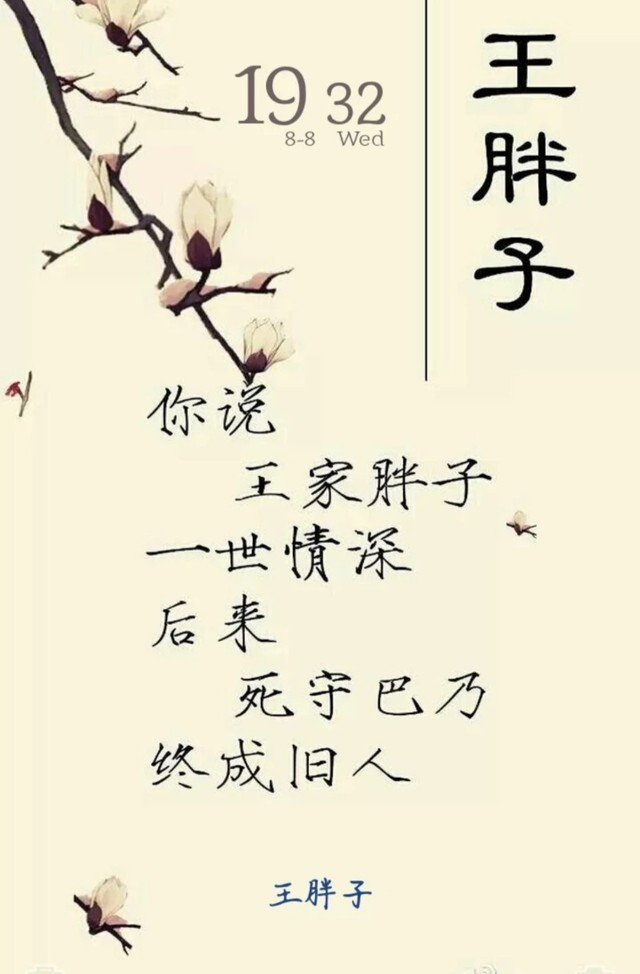 王胖子
19 32
8-8 Wed
你说
王家胖子
一世情深
后来
死守巴乃
终成旧人
王胖子